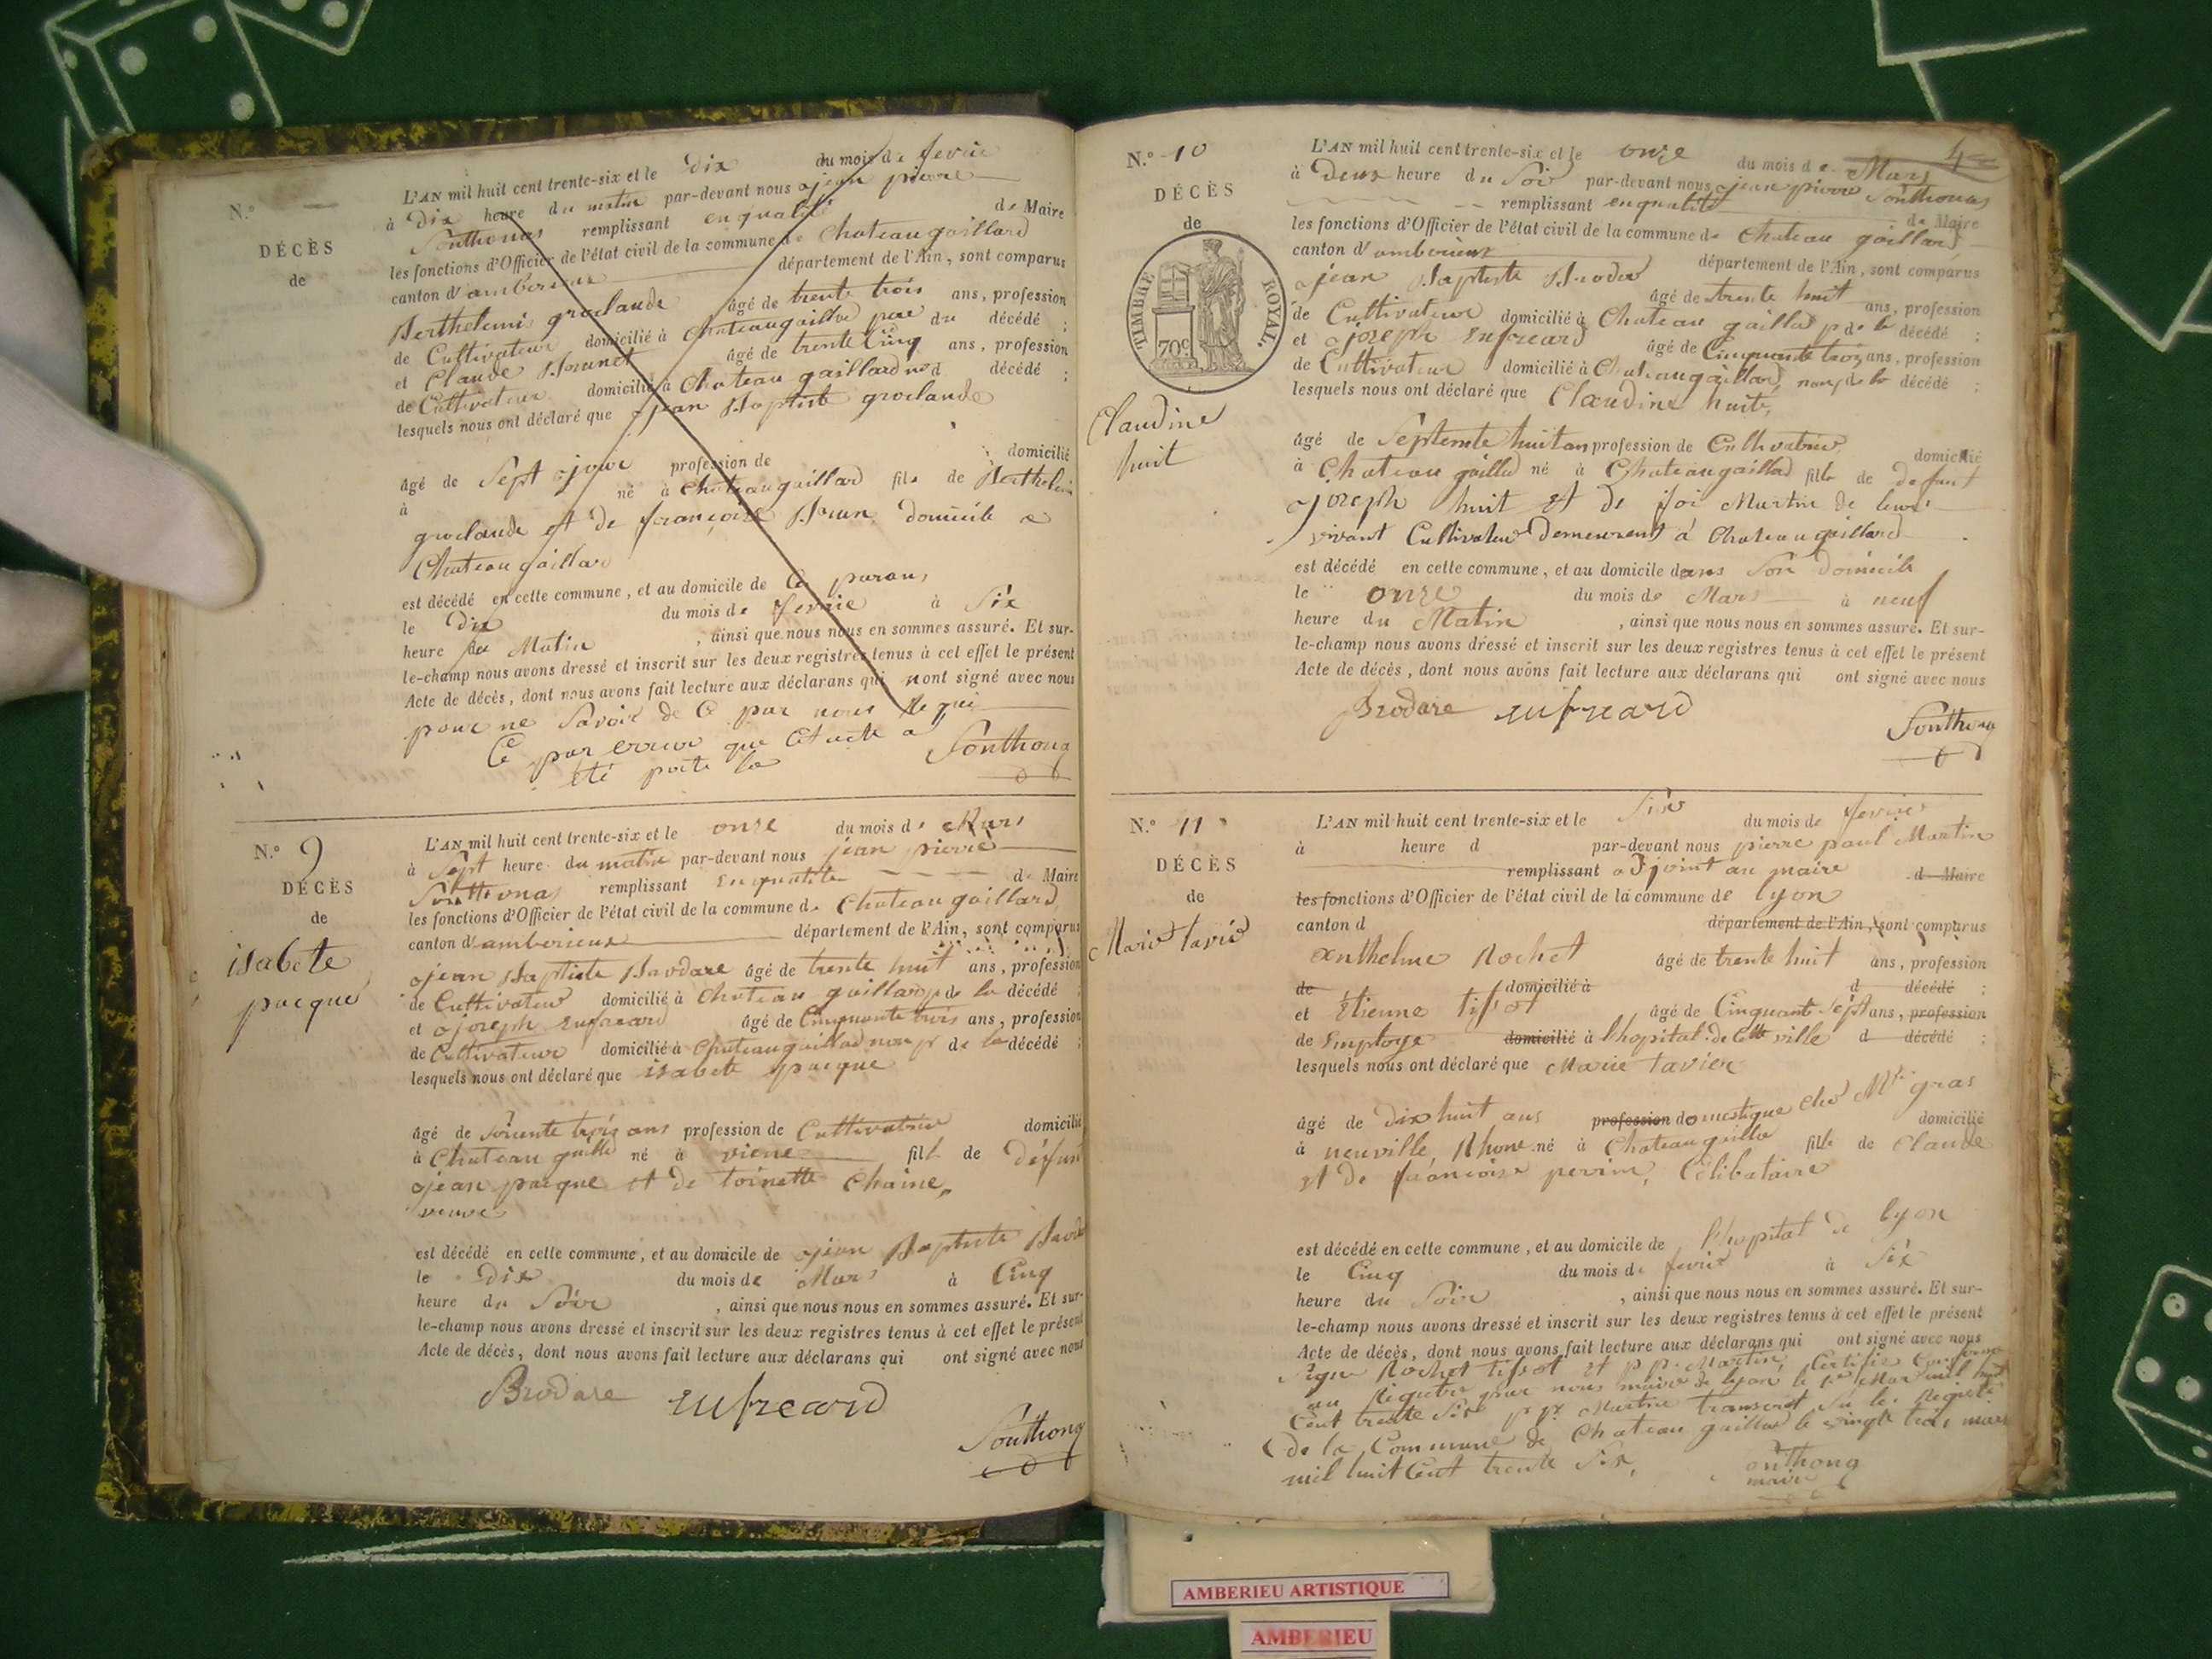 N.° —
DÉCÈS
de
L'AN mil huit cent trente-six et le dix du mois de fevrie
à Dix heure du matin par-devant nous jean pierre
Sonthonas remplissant en qualité de Maire
les fonctions d'Officier de l'état civil de la commune de Chateau gaillard
canton d'amberieux département de l'Ain, sont comparus
Berthelemi groclaude âgé de trente trois ans, profession
de Cultivateur domicilié à Chateaugaillad pere du décédé ;
et Claude Brunet âgé de trente Cinq ans, profession
de Cultivateur domicilié à Chateau gaillard décédé ;
lesquels nous ont déclaré que jean Baptiste groclaude
âgé de Sept jour profession de domicilié
à né à Chateaugaillard fils de Berthelemi
groclaude et de françoise Brun domicile a
Chateau gaillar
est décédé en cette commune, et au domicile de Ces parans
le Dix du mois de fevrie à Six
heure du Matin , ainsi que nous nous en sommes assuré. Et sur-
le-champ nous avons dressé et inscrit sur les deux registres tenus à cet effet le présent
Acte de décès, dont nous avons fait lecture aux déclarans qui nont signé avec nous
pour ne Savoir de Ce par nous Requi
Ce par erreur que Cet acte a
été porte la
Sonthonas
N.° 9
DÉCÈS
de
isabete
pacque
L'AN mil huit cent trente-six et le onze du mois de Mars
à Sept heure du matin par-devant nous jean pierre
Sonthonas remplissant En qualité de Maire
les fonctions d'Officier de l'état civil de la commune de Chateau gaillard
canton d'amberieux département de l'Ain, sont comparus
jean Baptiste Brodare âgé de trente huit ans, profession
de Cultivateur domicilié à Chateau gaillard p de la décédé ;
et joseph Enfreard âgé de Cinquante trois ans, profession
de Cultivateur domicilié à Chateaugaillad non p de la décédé ;
lesquels nous ont déclaré que isabete pacque
âgé de soicente trois ans profession de Cultivatrice domicilié
à Chateau gaille né à viene fille de défun
jean pacque et de toinette Chaine,
veuve
est décédé en cette commune, et au domicile de jean Baptiste Brod
le Dix du mois de Mars à Cinq
heure du Soir , ainsi que nous nous en sommes assuré. Et sur-
le-champ nous avons dressé et inscrit sur les deux registres tenus à cet effet le présent
Acte de décès, dont nous avons fait lecture aux déclarans qui ont signé avec nous
Brodare enfreard
Sonthonas
4
N.° 10
DÉCÈS
de
TIMBRE ROYAL.
70c
Claudine
huit
L'AN mil huit cent trente-six et le onze du mois de Mars
à Deux heure du Soir par-devant nous jean pierre Sonthonas
remplissant en qualité de Maire
les fonctions d'Officier de l'état civil de la commune de Chateau gaillard
canton d'amberieux département de l'Ain, sont comparus
jean Baptiste Broder âgé de trente huit ans, profession
de Cultivateur domicilié à Chateau gaillad p de la décédé ;
et joseph Enfreard âgé de Cinquante trois ans, profession
de Cultivateur domicilié à Chateaugaillard, non p de la décédé ;
lesquels nous ont déclaré que Claudine huit,
âgé de Septente huit an profession de Cultivatrice domicilié
à Chateau gaillad né à Chateaugaillad fille de defunt
joseph huit et de foi Martin de leur
vivant Cultivateur Demeurent à Chateaugaillard
est décédé en cette commune, et au domicile dans Son domicile
le onze du mois de Mars à neuf
heure du Matin , ainsi que nous nous en sommes assuré. Et sur-
le-champ nous avons dressé et inscrit sur les deux registres tenus à cet effet le présent
Acte de décès, dont nous avons fait lecture aux déclarans qui ont signé avec nous
Brodare enfreard
Sonthonas
N.° 11
DÉCÈS
de
Marie tavié
L'AN mil huit cent trente-six et le Six du mois de fevrie
à heure d par-devant nous pierre paul Martin
remplissant adjoint au maire d Maire
les fonctions d'Officier de l'état civil de la commune de lyon
canton d département de l'Ain, sont comparus
Anthelme Rochet âgé de trente huit ans, profession
de domicilié à d décédé ;
et Etienne tissot âgé de Cinquante Sept ans, profession
de Employe domicilié à l'hopital de Cette ville d décédé ;
lesquels nous ont déclaré que Marie tavier
âgé de dix huit ans profession domestique ché Mr gras domicilié
à neuville, Rhone né à Chateaugailla fille de Claude
et de francoise perrin, Célibataire
est décédé en cette commune, et au domicile de l'hopital de lyon
le Cinq du mois de fevrie à Six
heure du Soir , ainsi que nous nous en sommes assuré. Et sur-
le-champ nous avons dressé et inscrit sur les deux registres tenus à cet effet le présent
Acte de décès, dont nous avons fait lecture aux déclarans qui ont signé avec nous
Signe Rochet tissot et p p. Martin, Certifié Conforme
au Registre par nous maire de lyon le 1er Mar mil huit
Cent trente Six p pr Martin transcrit Su le Registre
de la Commune de Chateau gaillad le vingt trois mars
mil huit Cent trente Six,
Sonthonas
maire
AMBERIEU ARTISTIQUE
AMBERIEU